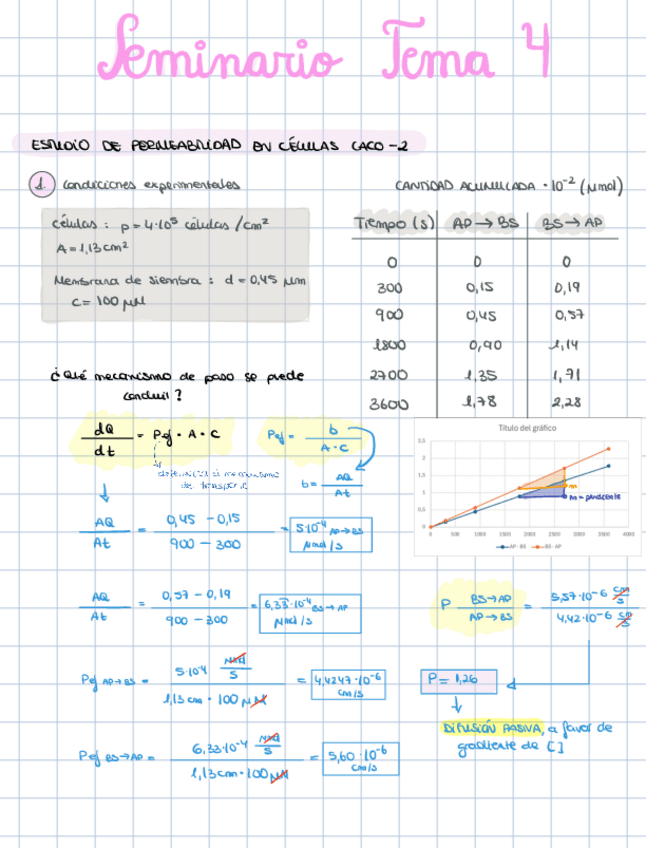 Seminario Tema 4
ESTUDIO DE PERMEABILIDAD EN CÉLULAS CACO-2
1. Condiciones experimentales
Células: p = 4·10⁵ células/cm²
A = 1,13 cm²
Membrana de siembra: d = 0,45 µm
C = 100 µM
CANTIDAD ACUMULADA · 10⁻² (µmol)
Tiempo (s) AP→BS BS→AP
0 0 0
300 0,15 0,19
900 0,45 0,57
1800 0,90 1,14
2700 1,35 1,71
3600 1,78 2,28
¿Qué mecanismo de paso se puede
concluir?
dQ/dt = Pef · A · C
Pef = b / A·C
b = ΔQ/Δt
Título del gráfico
2,5
2
1,5
1
0,5
0
0 500 1000 1500 2000 2500 3000 3500 4000
m
m = pendiente
AP - BS BS - AP
ΔQ/Δt = 0,45 - 0,15 / 900 - 300 = 5·10⁻⁶ AP→BS µmol/s
ΔQ/Δt = 0,57 - 0,19 / 900 - 300 = 6,33·10⁻⁴ BS→AP µmol/s
Pef AP→BS = 5·10⁻⁴ µmol/s / 1,13 cm · 100 µM = 4,4247·10⁻⁶ cm/s
Pef BS→AP = 6,33·10⁻⁴ µmol/s / 1,13 cm · 100 µM = 5,60·10⁻⁶ cm/s
P BS→AP / AP→BS = 5,57·10⁻⁶ cm/s / 4,42·10⁻⁶ cm/s
P = 1,26
DIFUSIÓN PASIVA, a favor de
gradiente de [ ]